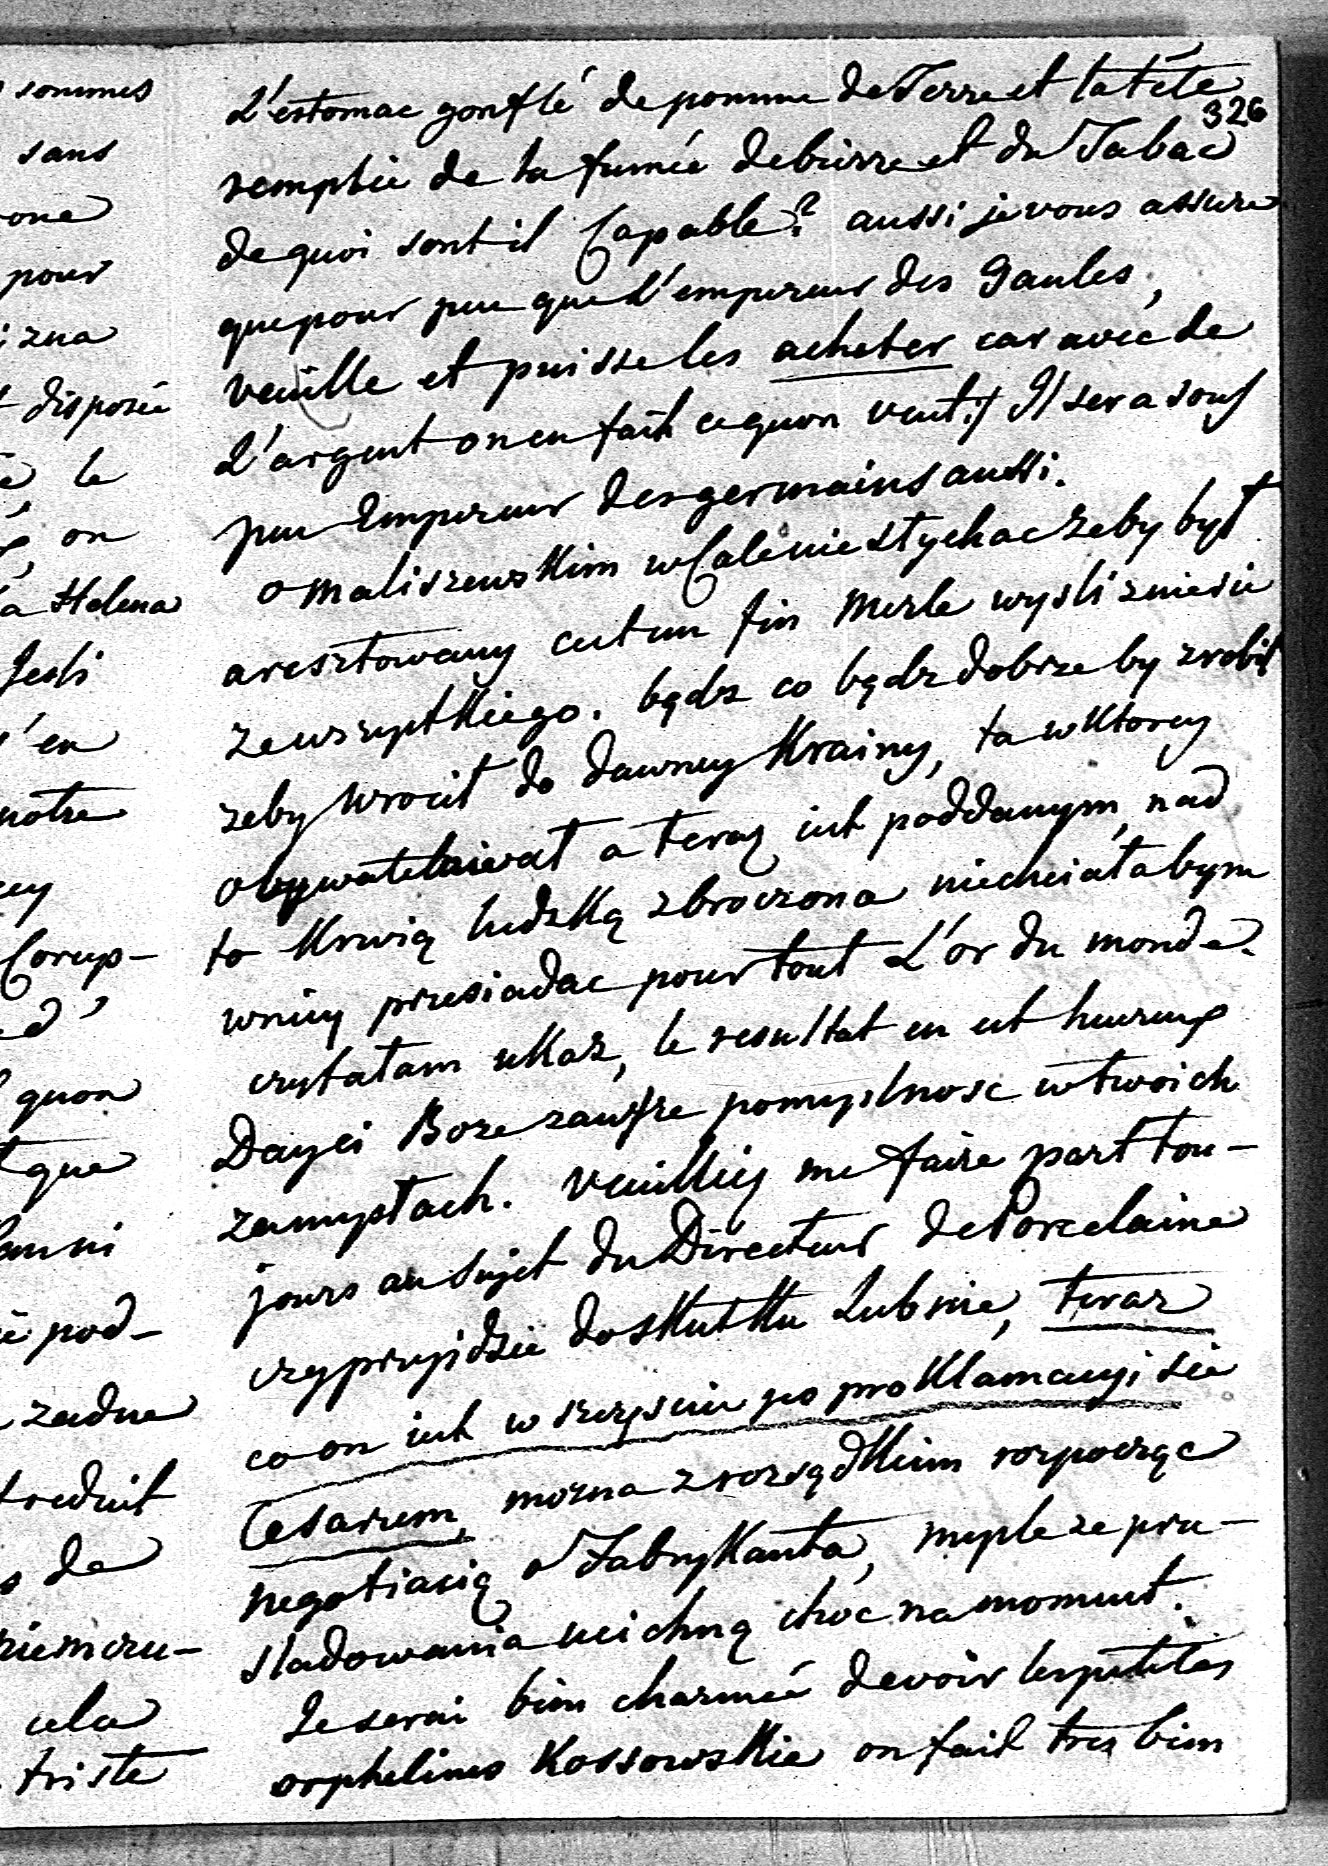 sommes
sans
one
pour
izna
disposée
le
on
a Helena
Jesli
s'en
notre
Corup-
quon
que
pod-
zadne
de
niemczu-
cela
triste
326
L'estomac gonflé de pomme de Terre et la tête
remplie de la fumée debierre et du Tabac
de quoi sont il Capable? aussi je vous assure
quepour peu que L'empereur des Gaules,
veuille et puisse les acheter car avec de
L'argent on en fait cequon veut. Il sera sous
peu Empereur des germains aussi.
o Maliszewskim w Cale nie stychac zeby byt
aresztowany cest un fin Merle wysliznie sie
zewszystkiego. bądz co bądz dobrze by zrobit
zeby wrocit do dawney Krainy, ta w Ktorey
obywatelniat a teraz iest poddanym, nad
to Krwią ludzką zbroczona niechciatabym
wniey przesiadac pour tout L'or du monde.
czytatam ukaz, le resultat en est heureux
Dayci Boze zawsze pomyslnosc w twoich
zamystach. veuilliez me faire part tou-
jours au sujet du Directeur de Porcelaine
czyprzyidzie do skutku Lub nie, teraz
co on iest w szczęsciu po proklamacyi sie
Cesarzem, mozna z rozsądkiem rozpocząc
negotiacią o Fabrykanta, mysle ze prze-
sladowania ucichną choc na moment.
Je serai bien charmée de voir les petites
orphelines Kossowskie on fait tres bien